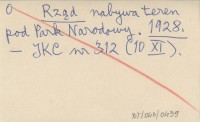 O Rząd nabywa teren
pod Park Narodowy. 1928.
– IKC nr 312 (10 XI).